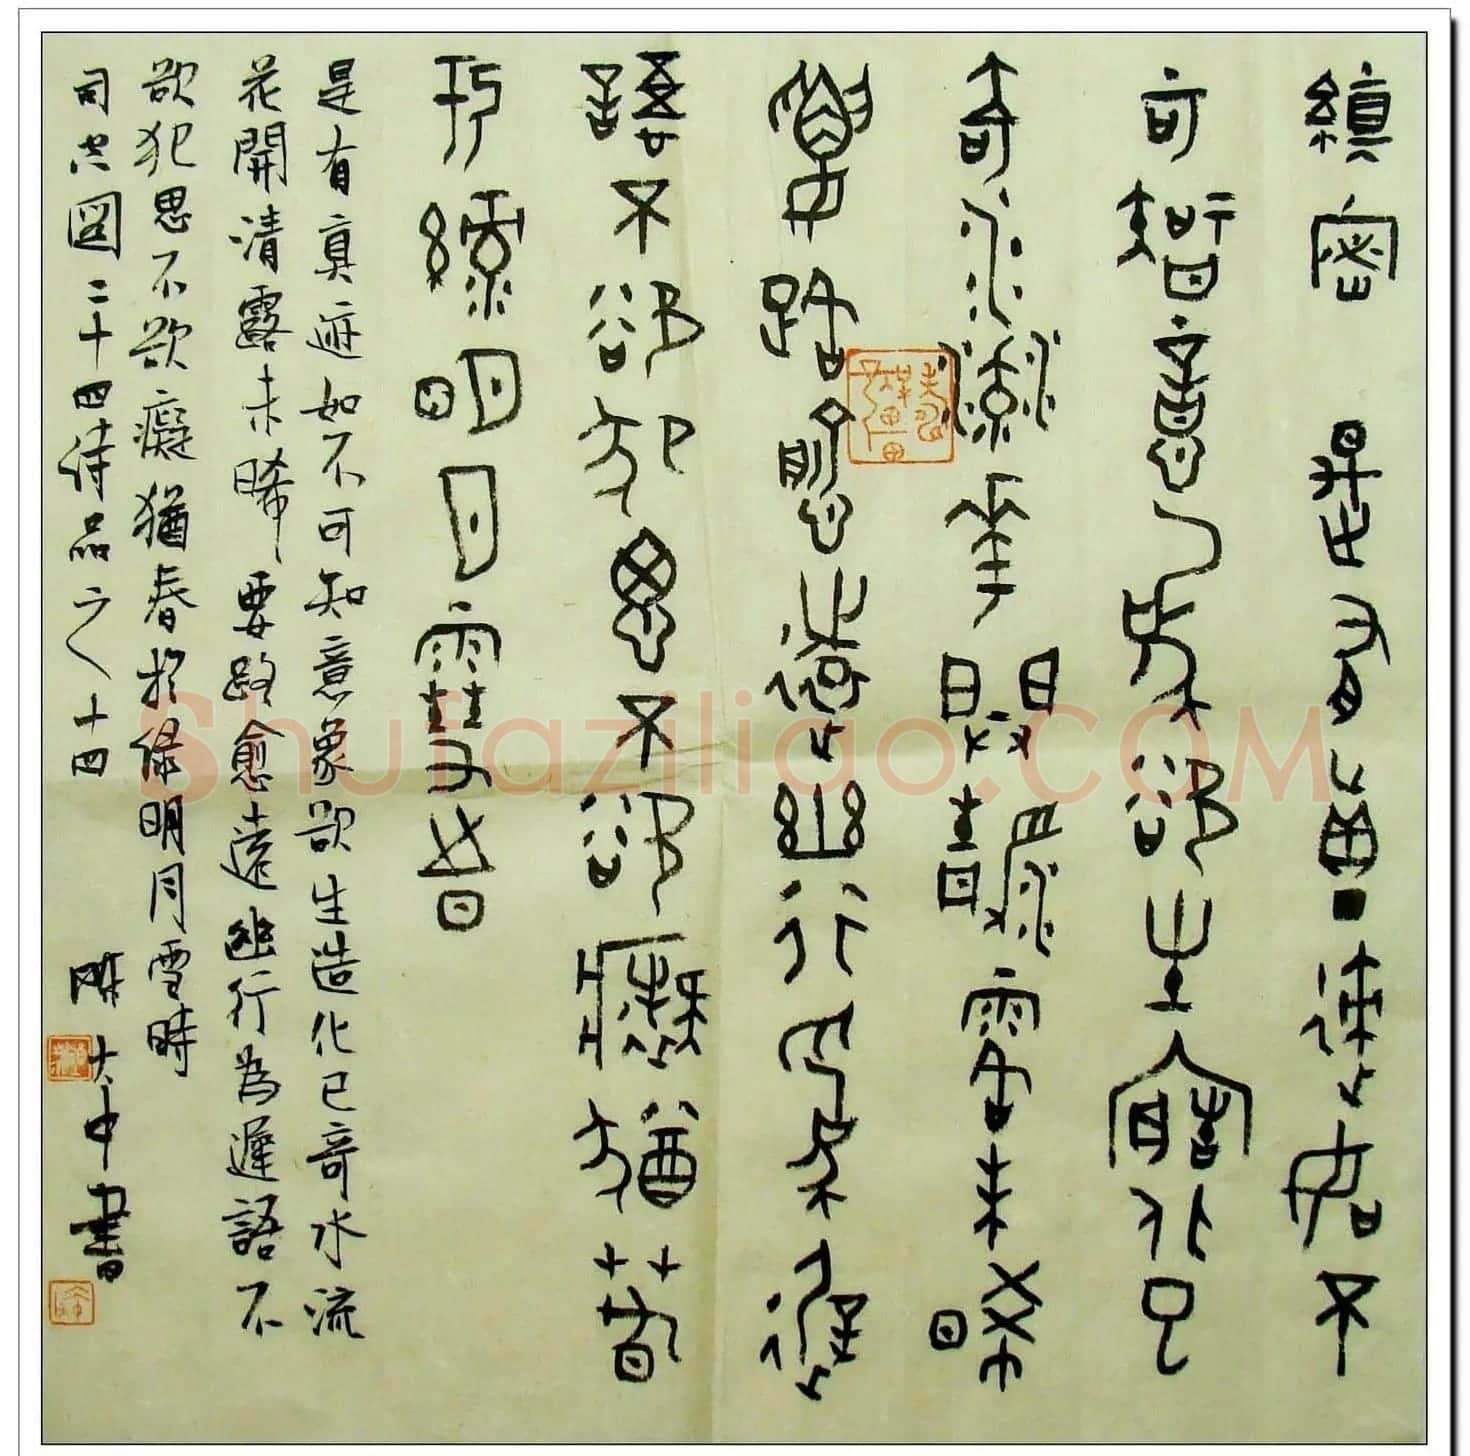 縝密 是有真迹如不
可智意象欲生造化已
奇水流華開清露未晞
要路愈遠幽行為遲
語不欲犯思不欲癡猶春
於綠明月雪時
是有真迹如不可知意象欲生造化已奇水流
花開清露未晞要路愈遠幽行為遲語不
欲犯思不欲癡猶春於綠明月雪時
司空圖二十四詩品之十四 陳大中書
Shufaziliao.COM